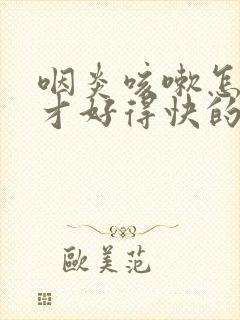 咽炎咳嗽怎
才好得快的
歐美范